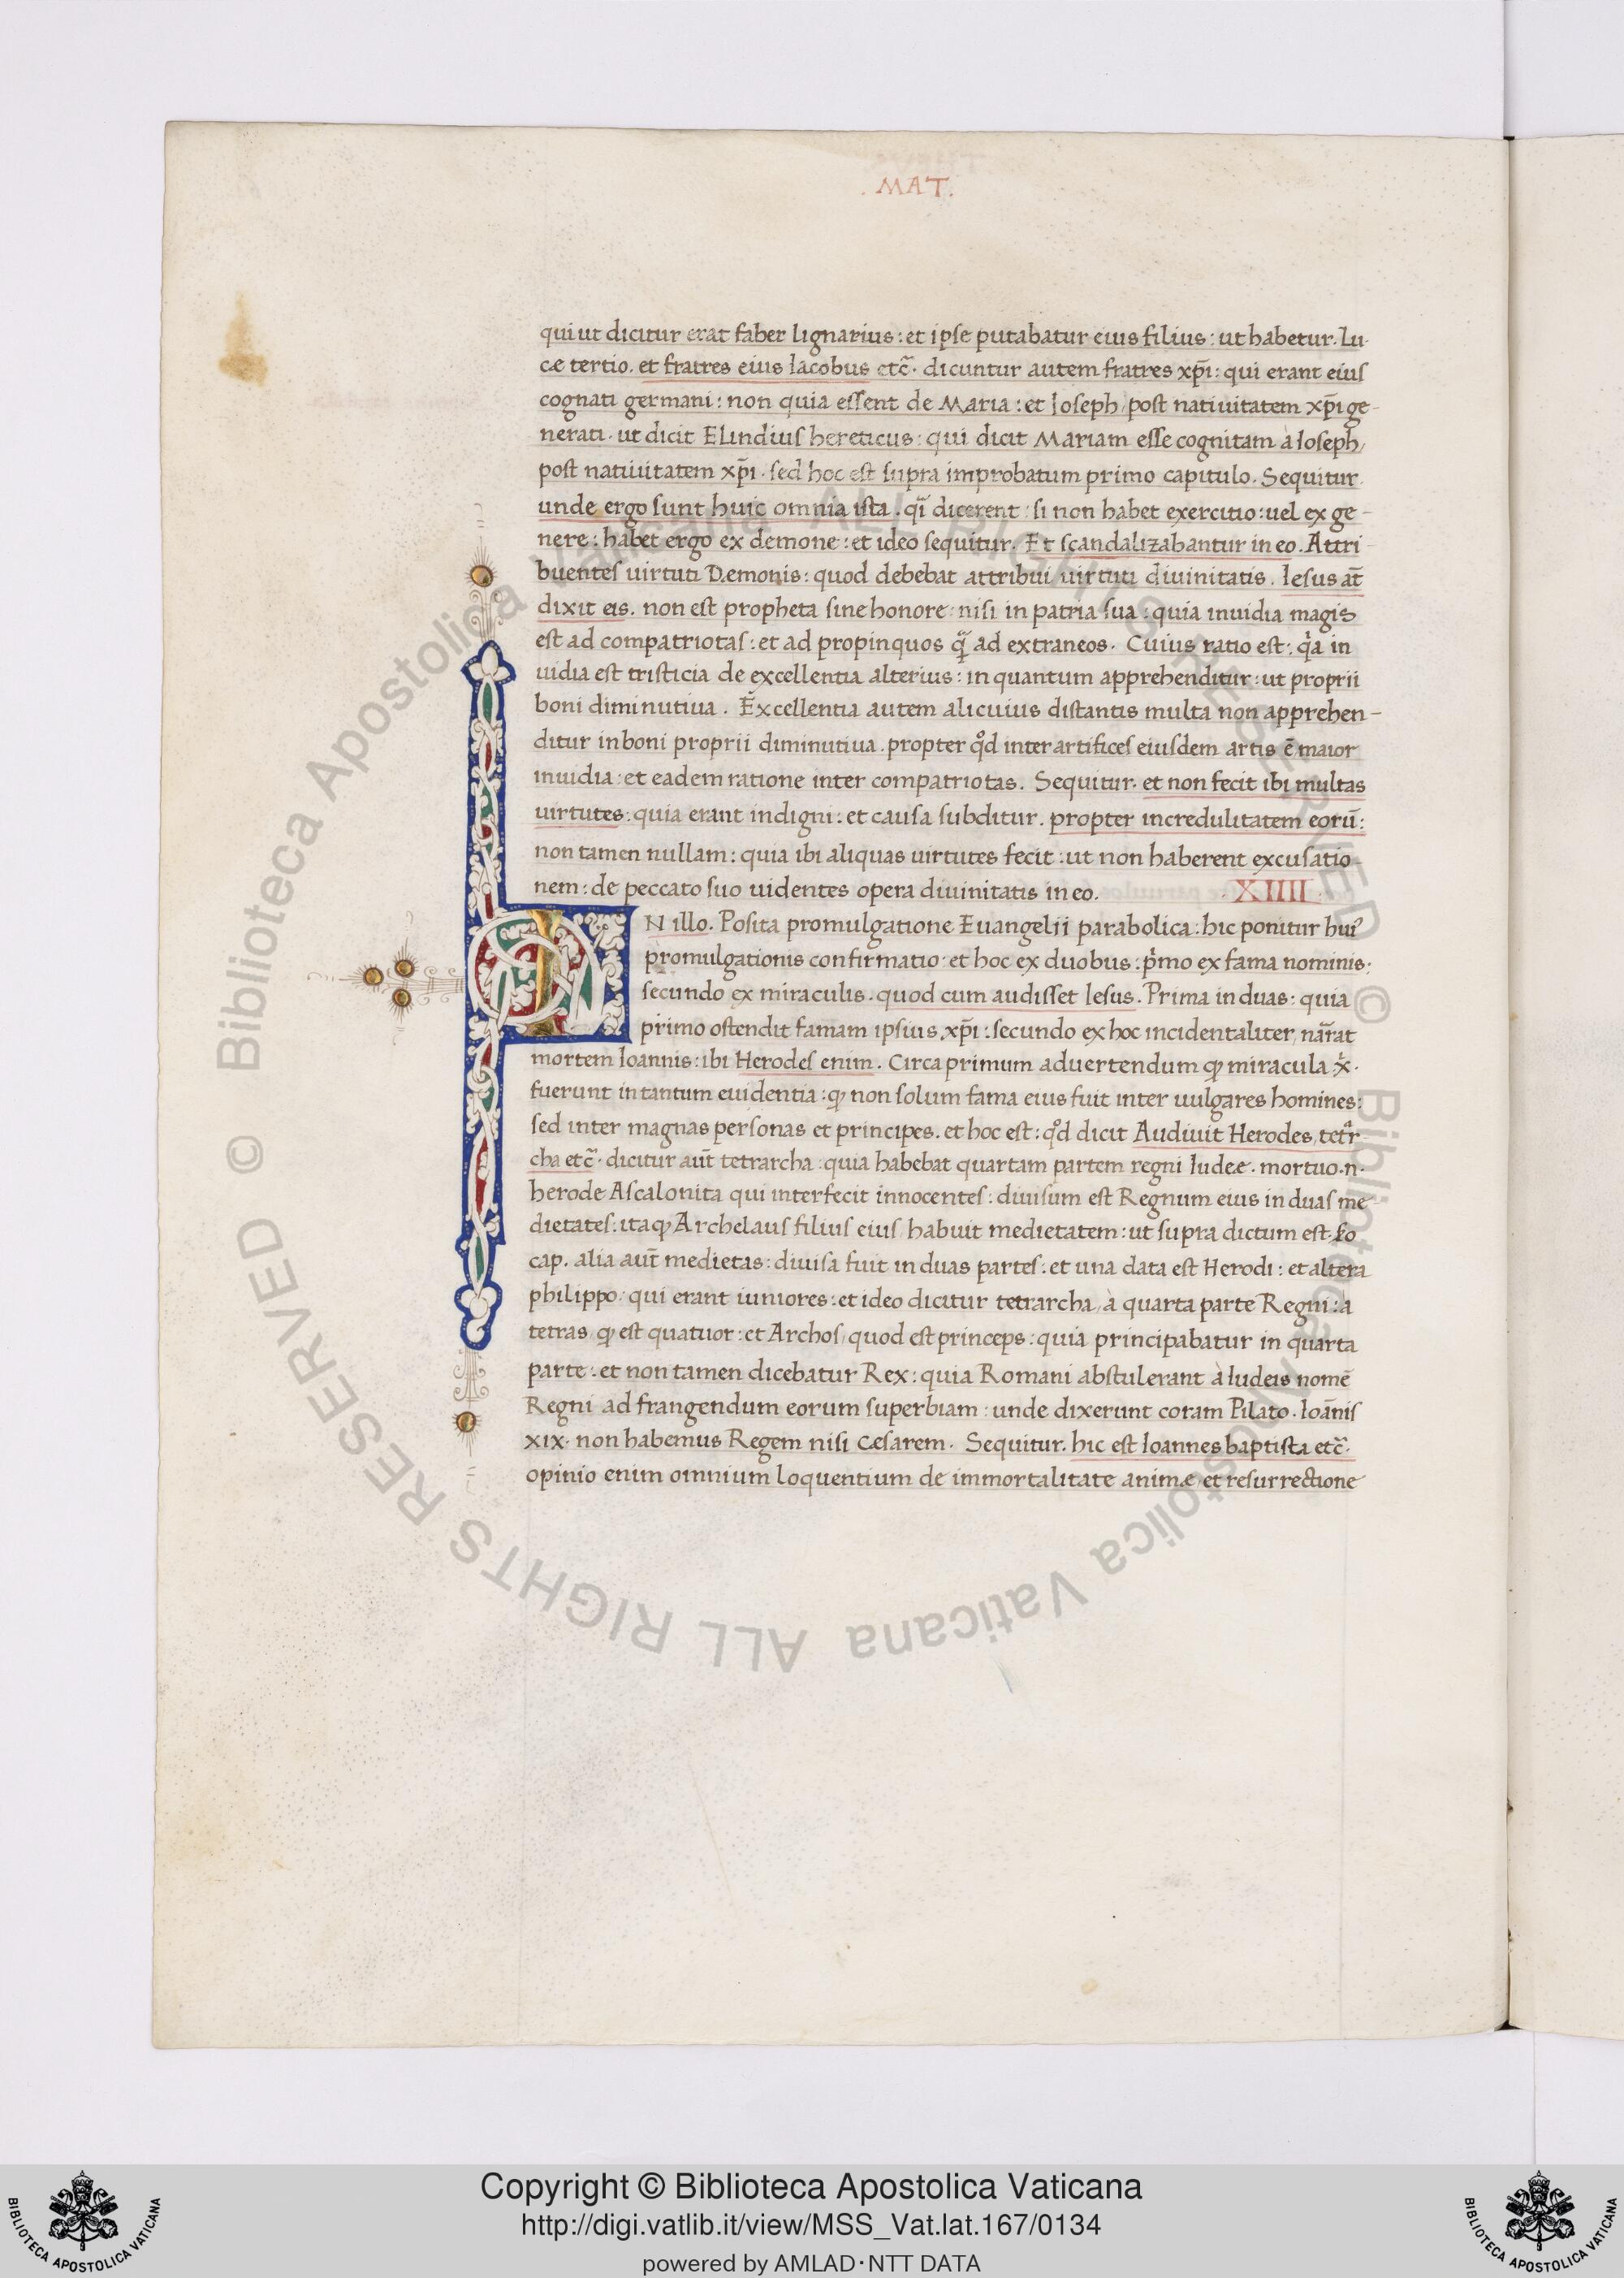 . MAT.
qui ut dicitur erat faber lignarius: et ipse putabatur eius filius: ut habetur. Lu-
cæ tertio. et fratres eius Iacobus etc̃. dicuntur autem fratres xp̃i: qui erant eius
cognati germani: non quia essent de Maria: et Ioseph, post natiuitatem xp̃i ge-
nerati. ut dicit Elindius hereticus: qui dicit Mariam esse cognitam à Ioseph,
post natiuitatem xp̃i. sed hoc est supra improbatum primo capitulo. Sequitur.
unde ergo sunt huic omnia ista. q̃i dicerent: si non habet exercitio: uel ex ge-
nere: habet ergo ex demone: et ideo sequitur. Et scandalizabantur in eo. Attri-
buentes uirtuti Dæmonis: quod debebat attribui uirtuti diuinitatis. Iesus at̃
dixit eis. non est propheta sine honore: nisi in patria sua: quia inuidia magis
est ad compatriotas: et ad propinquos q̃ ad extraneos. Cuius ratio est: qa in
uidia est tristicia de excellentia alterius: in quantum apprehenditur: ut proprii
boni diminutiua. Excellentia autem alicuius distantis multa non apprehen-
ditur in boni proprii diminutiua. propter qd inter artifices eiusdem artis ẽ maior
inuidia: et eadem ratione inter compatriotas. Sequitur. et non fecit ibi multas
uirtutes: quia erant indigni: et causa subditur. propter incredulitatem eorũ:
non tamen nullam: quia ibi aliquas uirtutes fecit: ut non haberent excusatio-
nem: de peccato suo uidentes opera diuinitatis in eo. . XIIII .
IN illo. Posita promulgatione Euangelii parabolica: hic ponitur hui᾽
promulgationis confirmatio: et hoc ex duobus: pimo ex fama nominis:
secundo ex miraculis. quod cum audisset Iesus. Prima in duas: quia
primo ostendit famam ipsius xp̃i: secundo ex hoc incidentaliter, nar̃at
mortem Ioannis: ibi Herodes enim. Circa primum aduertendum ꝙ miracula .x̃.
fuerunt in tantum euidentia: ꝙ non solum fama eius fuit inter uulgares homines:
sed inter magnas personas et principes. et hoc est: qd dicit Audiuit Herodes, tetr
cha etc̃. dicitur aut̃ tetrarcha: quia habebat quartam partem regni Iudeæ. mortuo .n.
herode Ascalonita qui interfecit innocentes: diuisum est Regnum eius in duas me
dietates: itaꝙ Archelaus filius eius, habuit medietatem: ut supra dictum est. so
cap. alia aut̃ medietas: diuisa fuit in duas partes: et una data est Herodi: et altera
philippo: qui erant iuniores: et ideo dicitur tetrarcha, à quarta parte Regni: a
tetras, ꝙ est quatuor: et Archos, quod est princeps: quia principabatur in quarta
parte: et non tamen dicebatur Rex: quia Romani abstulerant à Iudeis nomẽ
Regni ad frangendum eorum superbiam: unde dixerunt coram Pilato. Ioãnis
xix. non habemus Regem nisi Cesarem. Sequitur. hic est Ioannes baptista etc̃.
opinio enim omnium loquentium de immortalitate animæ, et resurrectione
© Biblioteca Apostolica Vaticana ALL RIGHTS RESERVED
© Biblioteca Apostolica Vaticana ALL RIGHTS RESERVED
Copyright © Biblioteca Apostolica Vaticana
http://digi.vatlib.it/view/MSS_Vat.lat.167/0134
powered by AMLAD·NTT DATA
BIBLIOTECA APOSTOLICA VATICANA
BIBLIOTECA APOSTOLICA VATICANA